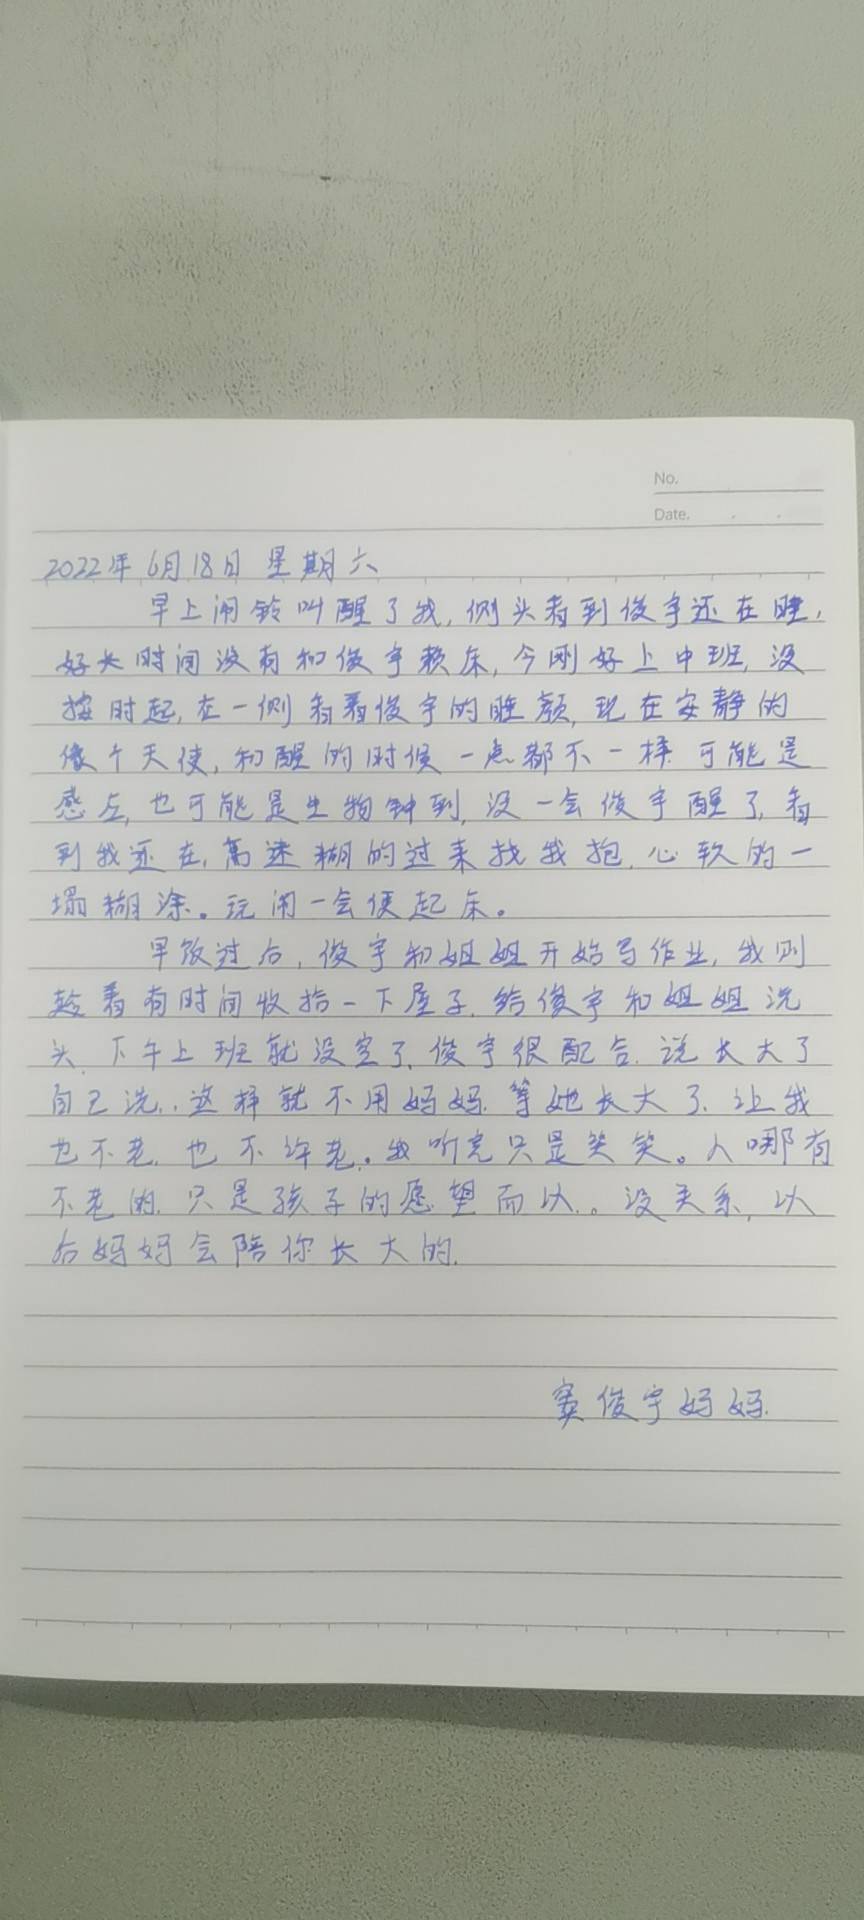 No.
Date.
2022年6月18日 星期六
早上闹铃叫醒了我,侧头看到俊宇还在睡,
好长时间没有和俊宇赖床,今刚好上中班,没
按时起,在一侧看着俊宇的睡颜,现在安静的
像个天使,和醒的时候一点都不一样.可能是
感应,也可能是生物钟到,没一会俊宇醒了,看
到我还在,迷糊的过来找我抱.心软的一
塌糊涂。玩闹一会便起床。
早饭过后,俊宇和姐姐开始写作业,我则
趁着有时间收拾一下屋子.给俊宇和姐姐洗
头.下午上班就没空了.俊宇很配合.说长大了
自己洗..这样就不用妈妈.等她长大了.让我
也不老.也不许老。我听完只是笑笑。人哪有
不老的.只是孩子的愿望而以.。没关系,以
后妈妈会陪你长大的.
窦俊宇妈妈.